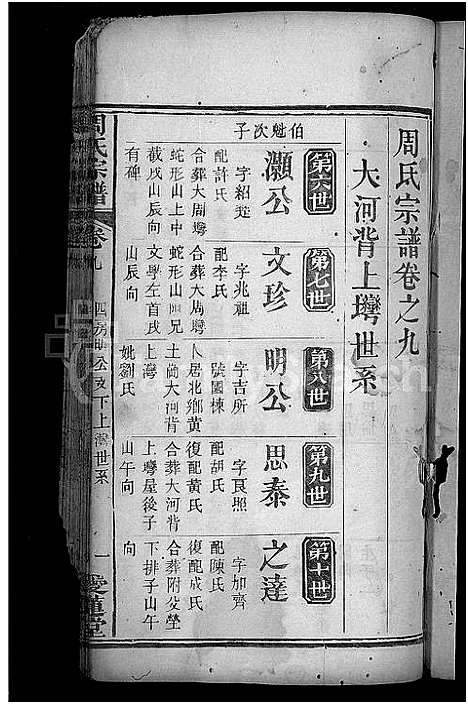 周氏宗譜卷之九
大河背上塆世系
第六世
伯魁次子
灝公
字紹迋
配許氏
合葬大周塆
蛇形山上中
截戌山辰向
有碑
第七世
文珍
字兆祖
配李氏
合葬大周塆
蛇形山 兄
文學左首戌
山辰向
第八世
明公
字吉所
號國棟
人居北鄉黃
土崗大河背
上灣
姚劉氏
第九世
思泰
字艮照
配胡氏
復配黃氏
合葬大河背
上塆屋後子
山午向
第十世
之達
字加齊
配陳氏
復配成氏
合葬附父塋
下排子山午
向
周氏宗譜
卷九
四房明公支下上灣世系
一
愛蓮堂